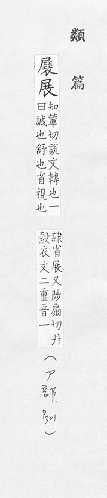 類篇
展
知輦切說文轉也一
曰誠也舒也省視也
隸省展又陟扇切丹
縠衣文二重音一
(尸部,